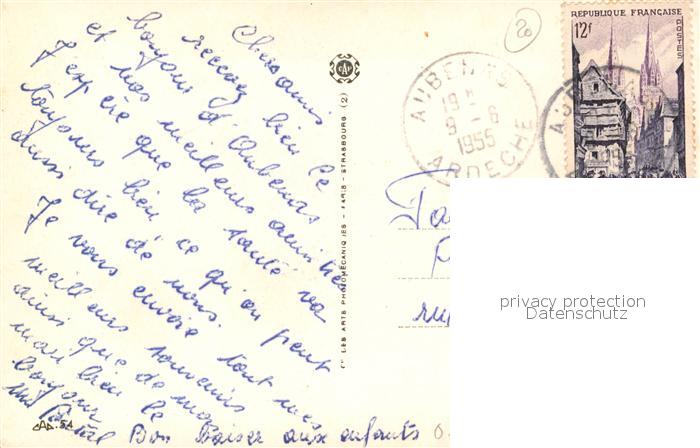 Chers amis
recevez bien le
bonjour d'Aubenas
et nos meilleurs amitiés
J'espère que la santé va
toujours bien ce qu'on peut
aussi dire de nous.
Je vous envoie tout mes
meilleurs souvenirs
ainsi que de mon
mari bien le
bonjour
Bon Baiser aux enfants
CAP-54
CAP
LES ARTS PHOTOMÉCANIQUES - PARIS - STRASBOURG (2)
20
RÉPUBLIQUE FRANÇAISE
12f
POSTES
AUBENAS
19 H
9-6
1955
ARDECHE
privacy protection
Datenschutz